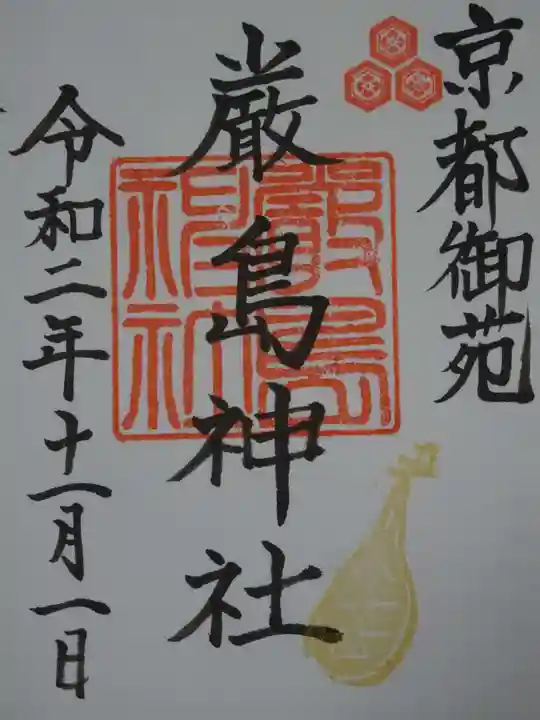 京都御苑
厳島神社
嚴島
神社
令和二年十一月一日